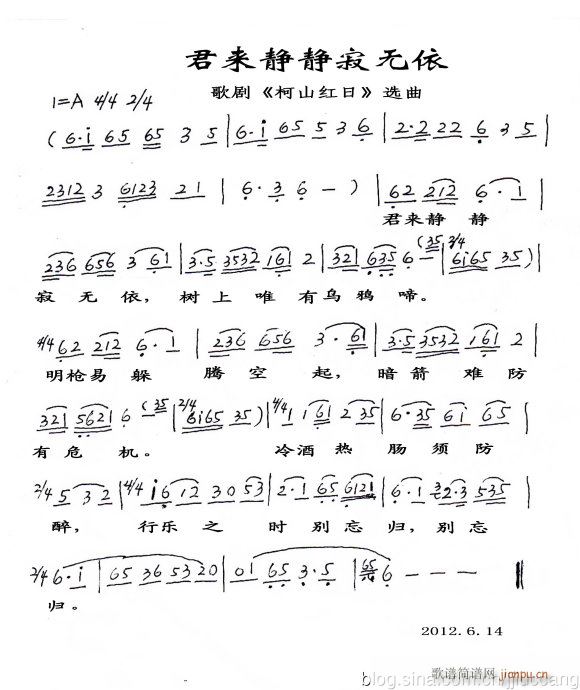 君来静静寂无依
歌剧《柯山红日》选曲
1=A 4/4 2/4
(6·i 65 65 3 5 | 6·i 65 5 3 6 | 2·2 22 6 3 5 |
2312 3 6123 21 | 6·3 6 — ) | 62 212 6·1 |
君来静 静
236 656 3 61 | 3·5 3532 161 2 | 321 635 6 — (35 | 2/4 6i65 35) |
寂无依，树上唯有乌鸦啼。
4/4 62 212 6·1 | 236 656 3·61 | 3·5 3532 161 2 |
明枪易躲 腾空 起，暗箭 难防
321 5621 6 (35 | 2/4 6i65 35) | 4/4 1 161 2 35 | 6·35 6i 65 |
有危 机。 冷酒热 肠须防
2/4 5 32 | 4/4 i6 12 30 53 | 2·1 65 6121 | 6·1 32·3 535 |
醉， 行乐之 时别忘归，别忘
2/4 6·i | 65 36 53 20 | 01 65 3·5 | 65 6 — — — ‖
归。
2012.6.14
歌谱简谱网
jianpu.cn